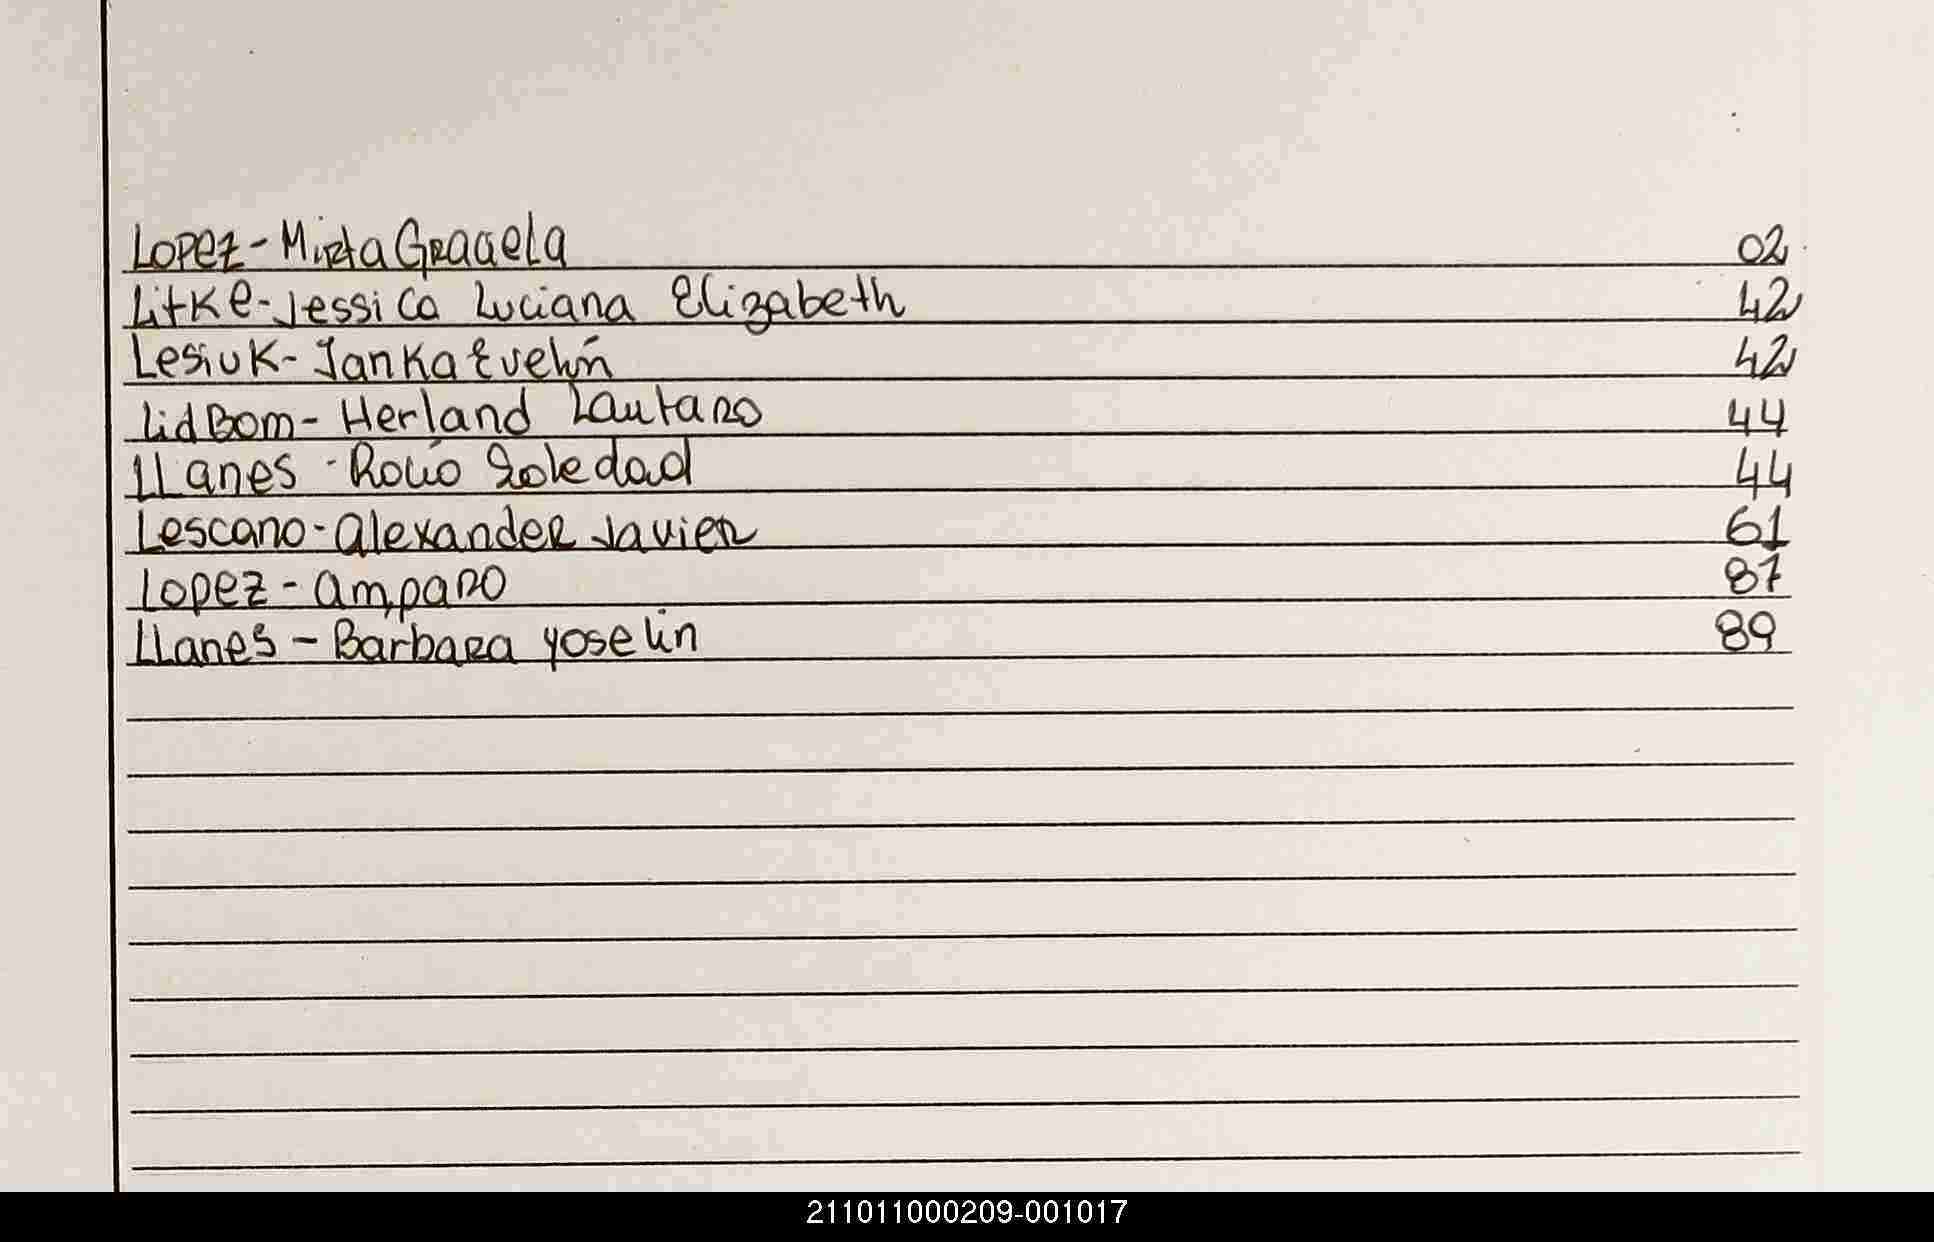 Lopez - Mirta Graciela 02
Litke - Jessica Luciana Elizabeth 42
Lesiuk - Janka Evelin 42
LidBom - Herland Lautaro 44
LLanes - Rocio Soledad 44
Lescano - Alexander Javier 61
Lopez - Amparo 87
LLanes - Barbara Yoselin 89
211011000209-001017